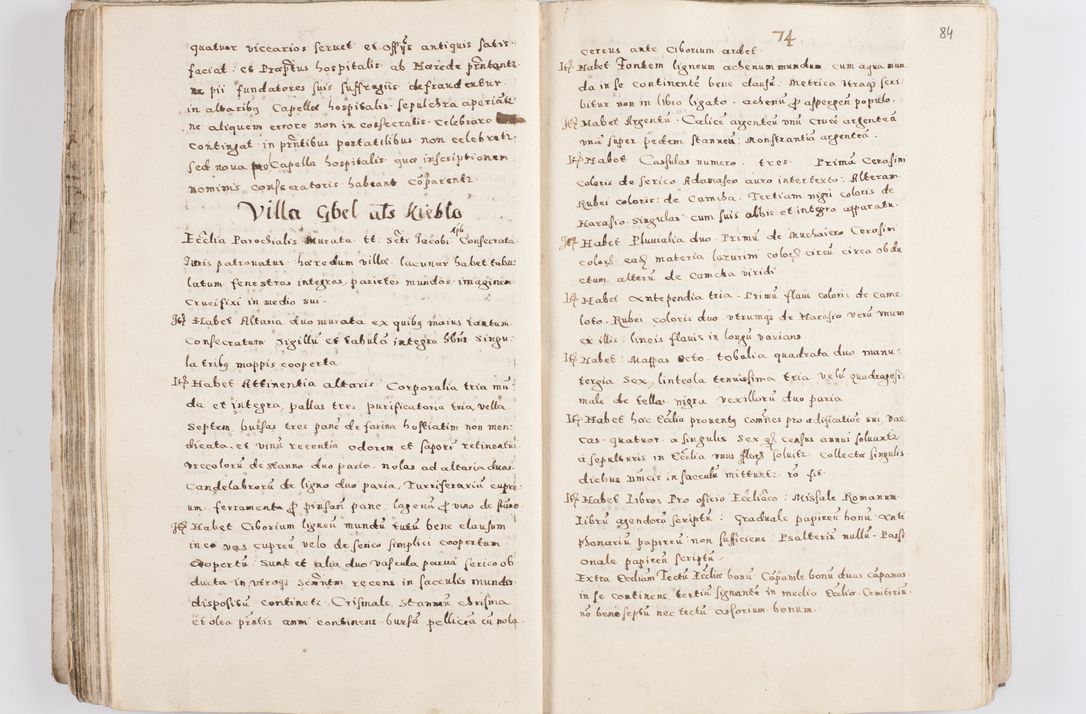 quatuor viccarios seruet et offys antiquis satis
faciat, et Præptus hospitalis ab Hærede pntantr
ne pii fundatores suis suffragiis defraudentur
in altaribq Capellæ hospitalis sepulchra aperiātr
ne aliquem errore non in consecratis celebraro
contingat in pntibus portatilibus non celebretr
sed noua Capella hospitalis quæ inscriptionem
nominis consecratoris habeant cōparentr
Villa Gbel als Kieblo
Ecclia Parochialis Murata tt: Scti Jacobi Apli Consecrata
Juris patronatus hæredum villæ lacunar habet tabu
latum fenestras integras, parietes mundos imaginem
Crucifixi in medio sui
Itē Habet Altaria duo murata ex quibq maius tantum
Consecratum Sigillū et tabulā integra hns singu
la tribq mappis cooperta
Itē Habet Attinentia altaris Corporalia tria mū
da et integra, pallas tres, purificatoria tria, vella
Septem, bursas tres pane de farina hostiatim non men
dicata, et vinū recentia odorem et saporē retinentia
Vrceolorū de stanno duo paria, nolas ad altaria duas
Candelabrorū de ligno duo paria, Turriferariū cupre
um, ferramenta p pinsan pane, lagena p vino de stāno
Itē Habet Ciborium ligneū mundū totū bene clausum
in eo vas cupreū velo de serico simplici coopertum
Coopertū Sunt et alia duo vascula parua serico ob
ducta in vtroqs Scmtm recens in sacculis mundis
dispositū continetr Crismale Stanneū chrisma
et olea pntis anni continens bursā pellicea cū nola
74
84
cereus ante Ciborium ardet
Itē Habet Fontem ligneum achenum mundum cum aqua mun
da in se continentē bene clausū Metrica vtraqs scri
bitur non in libro ligato, achenū p aspergen populo
Itē Habet Argentū Calicē argenteū vnū Crucē argenteā
vnā super pedem stanneū: Monstrantiā argenteā
Itē Habet Casulas numero tres Primā Cerasini
coloris de serico Adamasco auro intertexto: Alteram
Rubei coloris: de Camcha. Tertiam nigri coloris de
Harasio singulas cum suis albis et integro apparatu
Itē Habet Pluuialia duo Primū de Muchaiero Cerasini
colors eads materia lazurini colors circū circa obdu
ctum, alterū de Camcha viridi
Itē Habet Antependia tria Primū flaui coloris de Came
loto. Rubei coloris duo vtrumqs de Harasio verū vnum
ex illis: lineis flauis in longū varians
Itē Habet: Mappas octo, tobalia quadrata duo manu
tergia Sex, linteola tenuissima tria velū quadragesi
male de tella nigra vexillorū duo paria
Itē Habet hæc Ecclia prouentq comnes pro ædificatioē sui, Vac
cas quatuor a singulis Sex gs census annui soluuntr
a sepulturis in Ecclia vnus flors soluitr Collecta singulis
diebus Dnicis in sacculū mittuntr ro fit
Itē Habet Libros Pro officio Ecclīaco: Missale Romanum
librū agendorū scriptū: Graduale papireū bonū Anti
phonariū papireū non sufficiens Psalteriū nullū Passi
onale papireū scriptū
Extra Eccliam Tectū Ecclia bonū Cāpanile bonū duas cāpanas
in se continens, tertiā signantē in medio Ecclia Cemiteriū
nō bene septū nec tectū Ossorium bonum